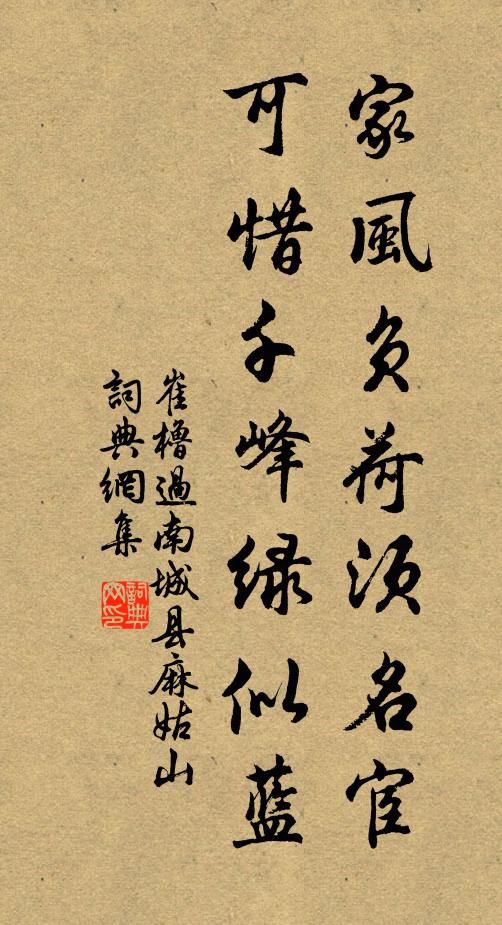 家風負荷須名宦
可惜千峰綠似藍
崔櫓過南城县麻姑山
詞典網集
詞典網印